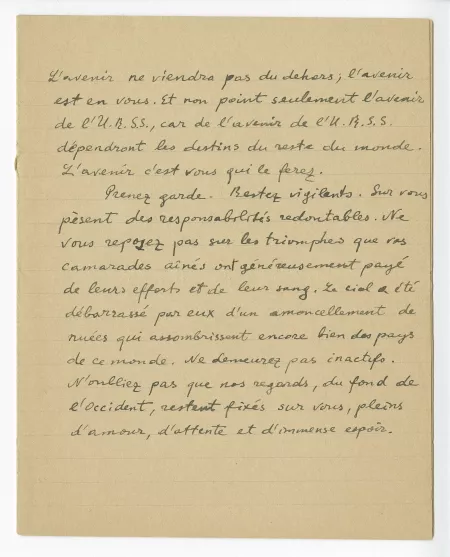 L'avenir ne viendra pas du dehors; l'avenir
est en vous. Et non point seulement l'avenir
de l'U.R.S.S., car de l'avenir de l'U.R.S.S.
dépendront les destins du reste du monde.
L'avenir c'est vous qui le ferez.
Prenez garde. Restez vigilents. Sur vous
pèsent des responsabilités redoutables. Ne
vous reposez pas sur les triomphes que vos
camarades aînés ont généreusement payé
de leurs efforts et de leur sang. Le ciel a été
débarrassé par eux d'un amoncellement de
nuées qui assombrissent encore bien des pays
de ce monde. Ne demeurez pas inactifs.
N'oubliez pas que nos regards, du fond de
l'Occident, restent fixés sur vous, pleins
d'amour, d'attente et d'immense espoir.